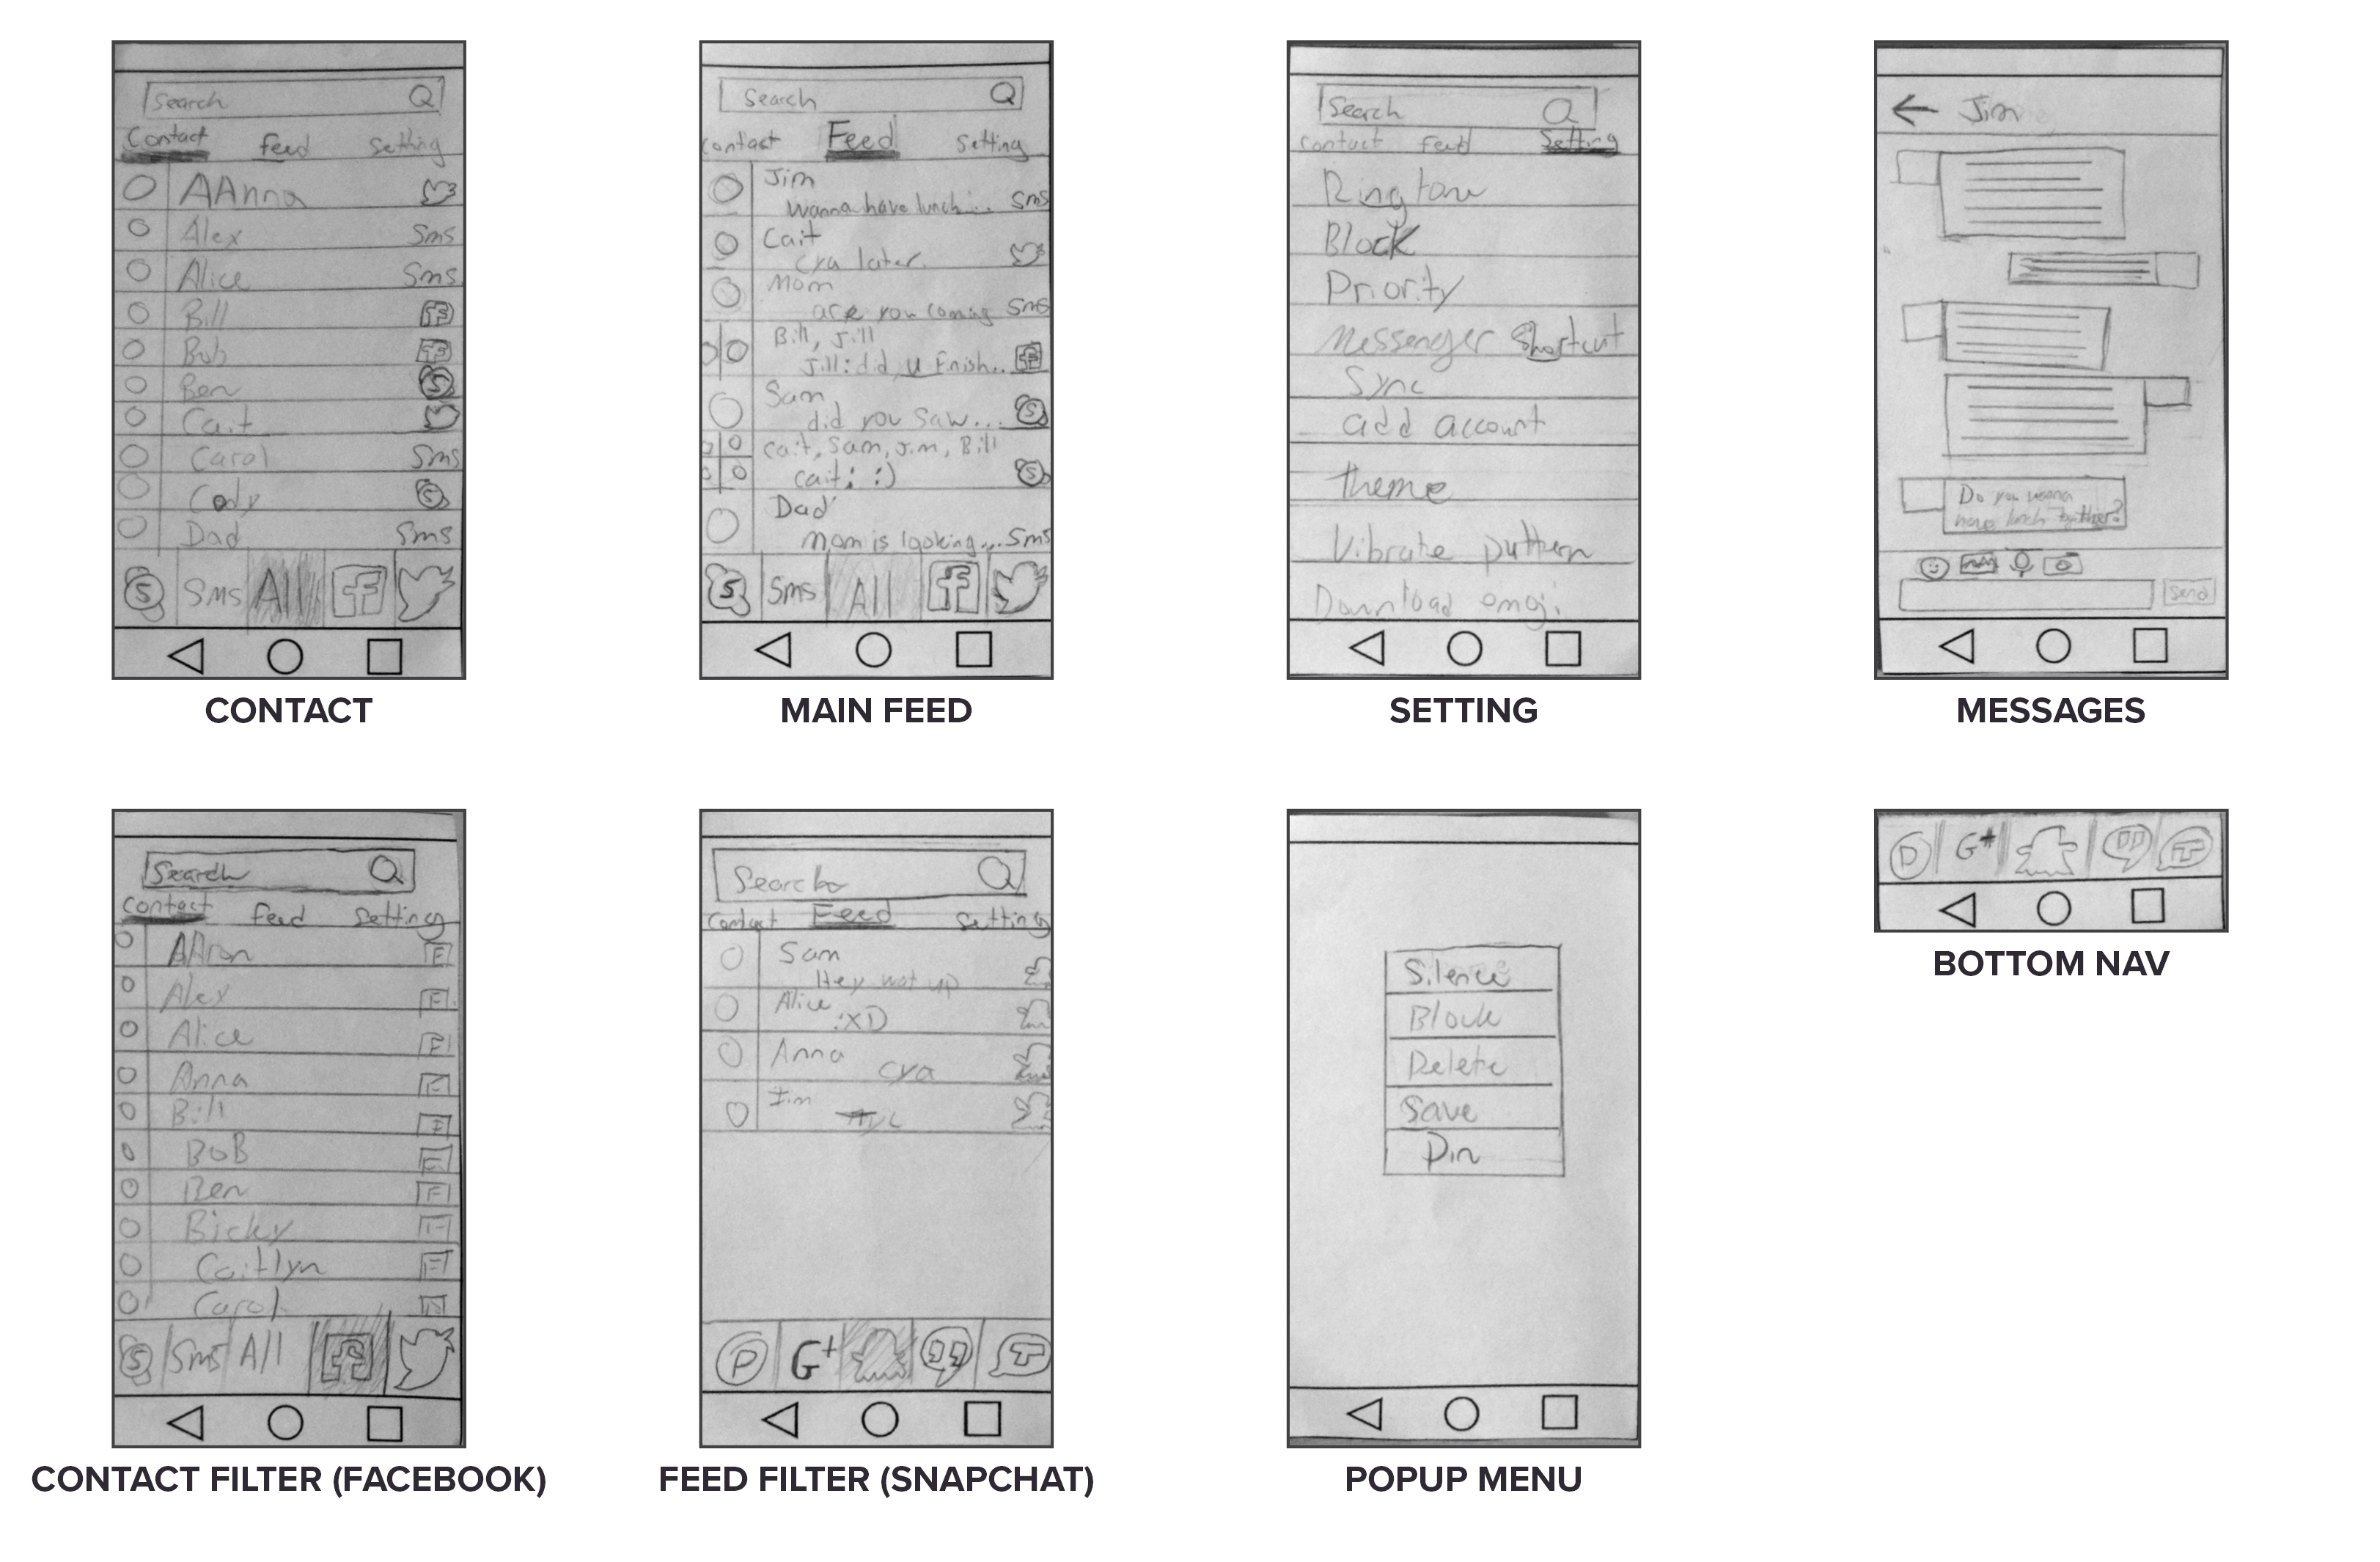 Search
Contact feed Setting
AAnna
Alex Sms
Alice Sms
Bill f
Bob f
Ben S
Cait
Carol Sms
Cody S
Dad Sms
S Sms All f
CONTACT
Search
contact Feed Setting
Jim
Wanna have lunch... Sms
Cait
cya later.
Mom
are you coming Sms
Bill, Jill
Jill: did u finish.. f
Sam
did you saw... S
cait, Sam, Jim, Bill
cait: :) S
Dad
Mom is looking... Sms
S Sms All f
MAIN FEED
Search
contact feed Setting
Ringtone
Block
Priority
Messenger Shortcut
Sync
add account
theme
Vibrate puttern
Download emoji
SETTING
Jim
Do you wanna
have lunch together?
Send
MESSAGES
Search
contact feed Setting
AAron F
Alex F
Alice F
Anna F
Bill F
BoB F
Ben F
Bicky F
Caitlyn F
Carol
S Sms All f
CONTACT FILTER (FACEBOOK)
Search
Contact Feed Setting
Sam
Hey wat up
Alice
:XD
Anna
cya
Jim
P G+ T
FEED FILTER (SNAPCHAT)
Silence
Block
Delete
Save
Pin
POPUP MENU
P G+ T
BOTTOM NAV